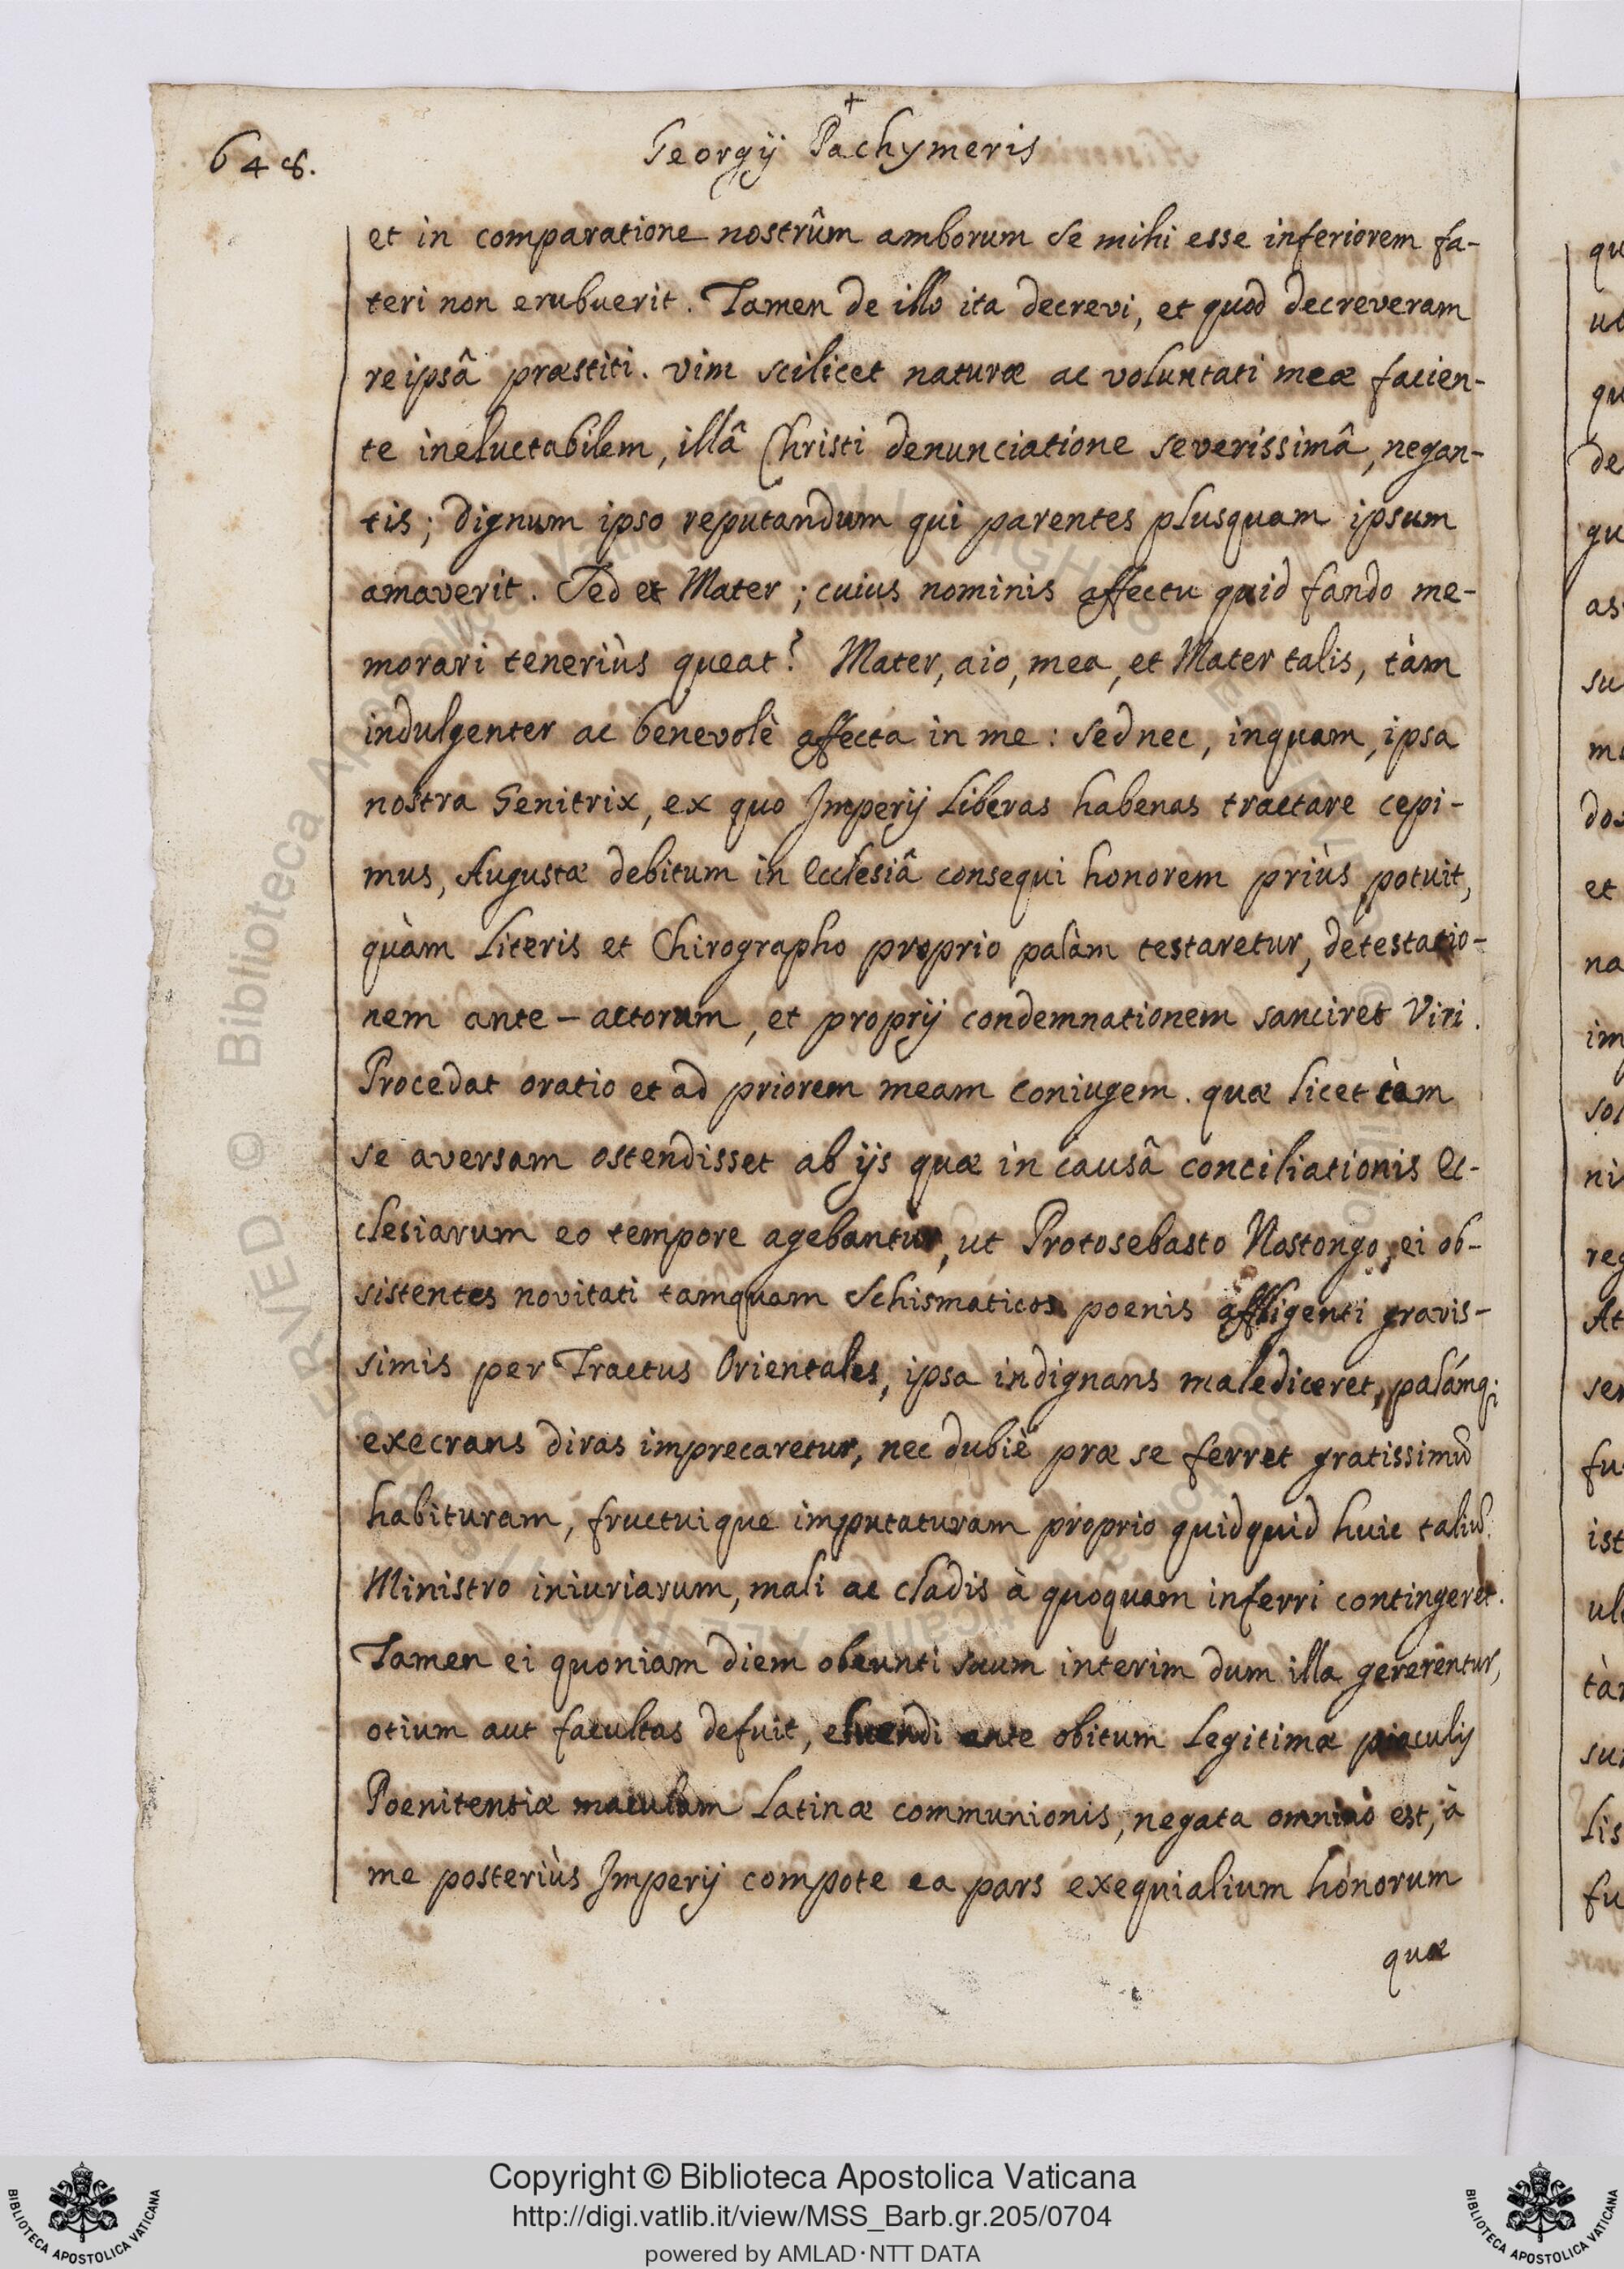 648.
Georgÿ Pachymeris
et in comparatione nostrûm amborum se mihi esse inferiorem fa-
teri non erubuerit. Tamen de illo ita decrevi, et quod decreveram
reipsâ præstiti. vim scilicet naturæ ac voluntati meæ facien-
te ineluctabilem, illâ Christi denunciatione severissimâ, negan-
tis; dignum ipso reputandum qui parentes plusquam ipsum
amaverit. Sed et Mater; cuius nominis affectu quid fando me-
morari teneriùs queat? Mater, aio, mea, et Mater talis, tàm
indulgenter ac benevolè affecta in me: sed nec, inquam, ipsa
nostra Genitrix, ex quo Imperÿ liberas habenas tractare cepi-
mus, Augustæ debitum in Ecclesiâ consequi honorem priùs potuit,
quàm literis et Chirographo proprio palàm testaretur, detestatio-
nem ante-actorum, et proprÿ condemnationem sanciret Viri.
Procedat oratio et ad priorem meam coniugem. quæ licet tàm
se aversam ostendisset ab ÿs quæ in causâ conciliationis Ec-
clesiarum eo tempore agebantur, ut Protosebasto Nostongo, ei ob-
sistentes novitati tamquam Schismaticos poenis affligenti gravis-
simis per Tractus Orientales, ipsa indignans malediceret, palámq;
execrans diras imprecaretur, nec dubiè præ se ferret gratissimū
habituram, fructuique imputaturam proprio quidquid huic taliū
Ministro iniuriarum, mali ac cladis à quoquam inferri contingeret.
Tamen ei quoniam diem obeunti suum interim dum illa gererentur,
otium aut facultas defuit, eluendi ante obitum legitimæ piaculis
Poenitentiæ maculam Latinæ communionis, negata omninò est, à
me posteriùs Imperÿ compote ea pars exequialium honorum
quæ
Copyright © Biblioteca Apostolica Vaticana
http://digi.vatlib.it/view/MSS_Barb.gr.205/0704
powered by AMLAD·NTT DATA